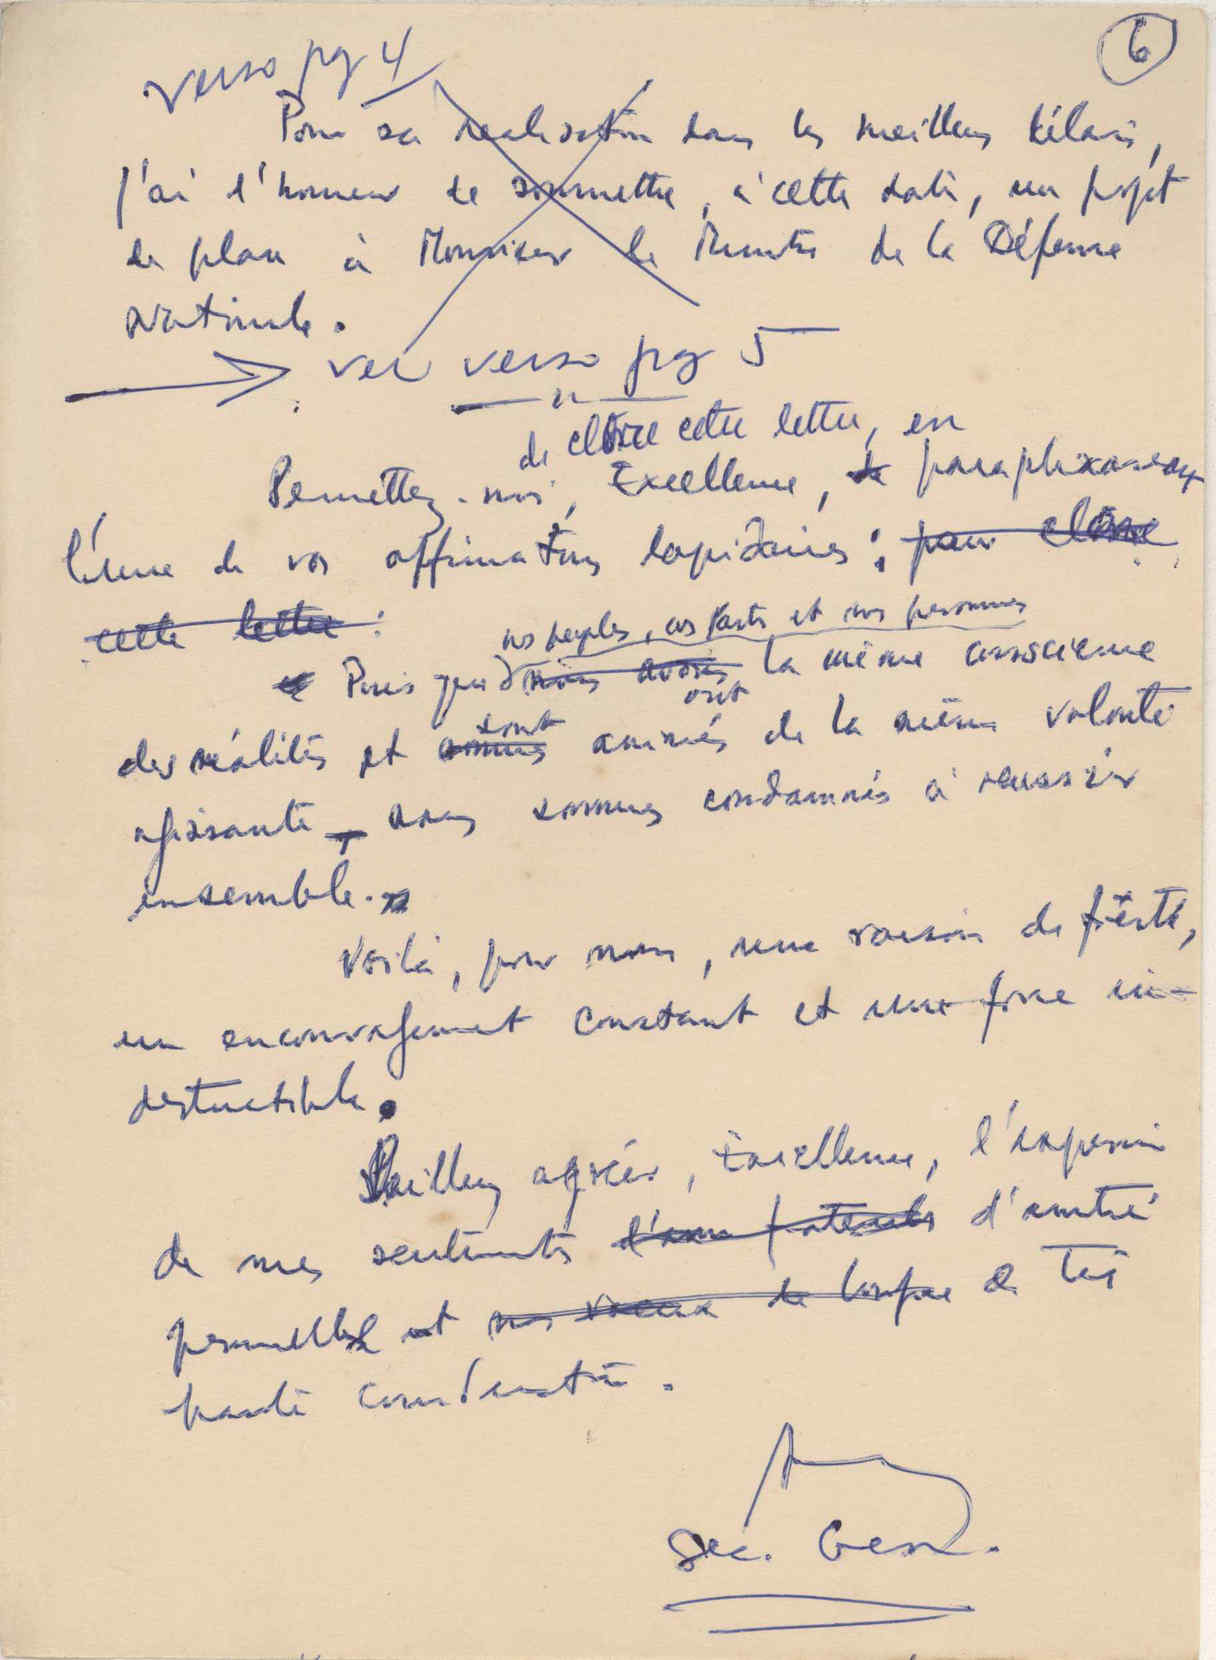 6
verso pg 4
Pour sa realisation dans les meilleurs délais,
j'ai l'honneur de soumettre, à cette date, un projet
de plan à Monsieur le Ministre de la Défense
Nationale.
ver verso pg 5
de clore cette lettre, en
Permettez-moi, Excellence, de paraphrasant
l'une de vos affirmations lapidaires : pour clore
cette lettre :
nos peuples, nos Partis et nos personnes
Puis que nous avons la même conscience
ont
sont
des réalités et sommes animés de la même volonté
agissante, nous sommes condamnés à réussir
ensemble.
Voilà, pour nous, une raison de fierté,
un encouragement constant et une force in-
destructible.
Veuillez agréer, Excellence, l'expression
de mes sentiments d'amitié
personnelle et nos voeux de de très
haute considération.
Sec. Gen.